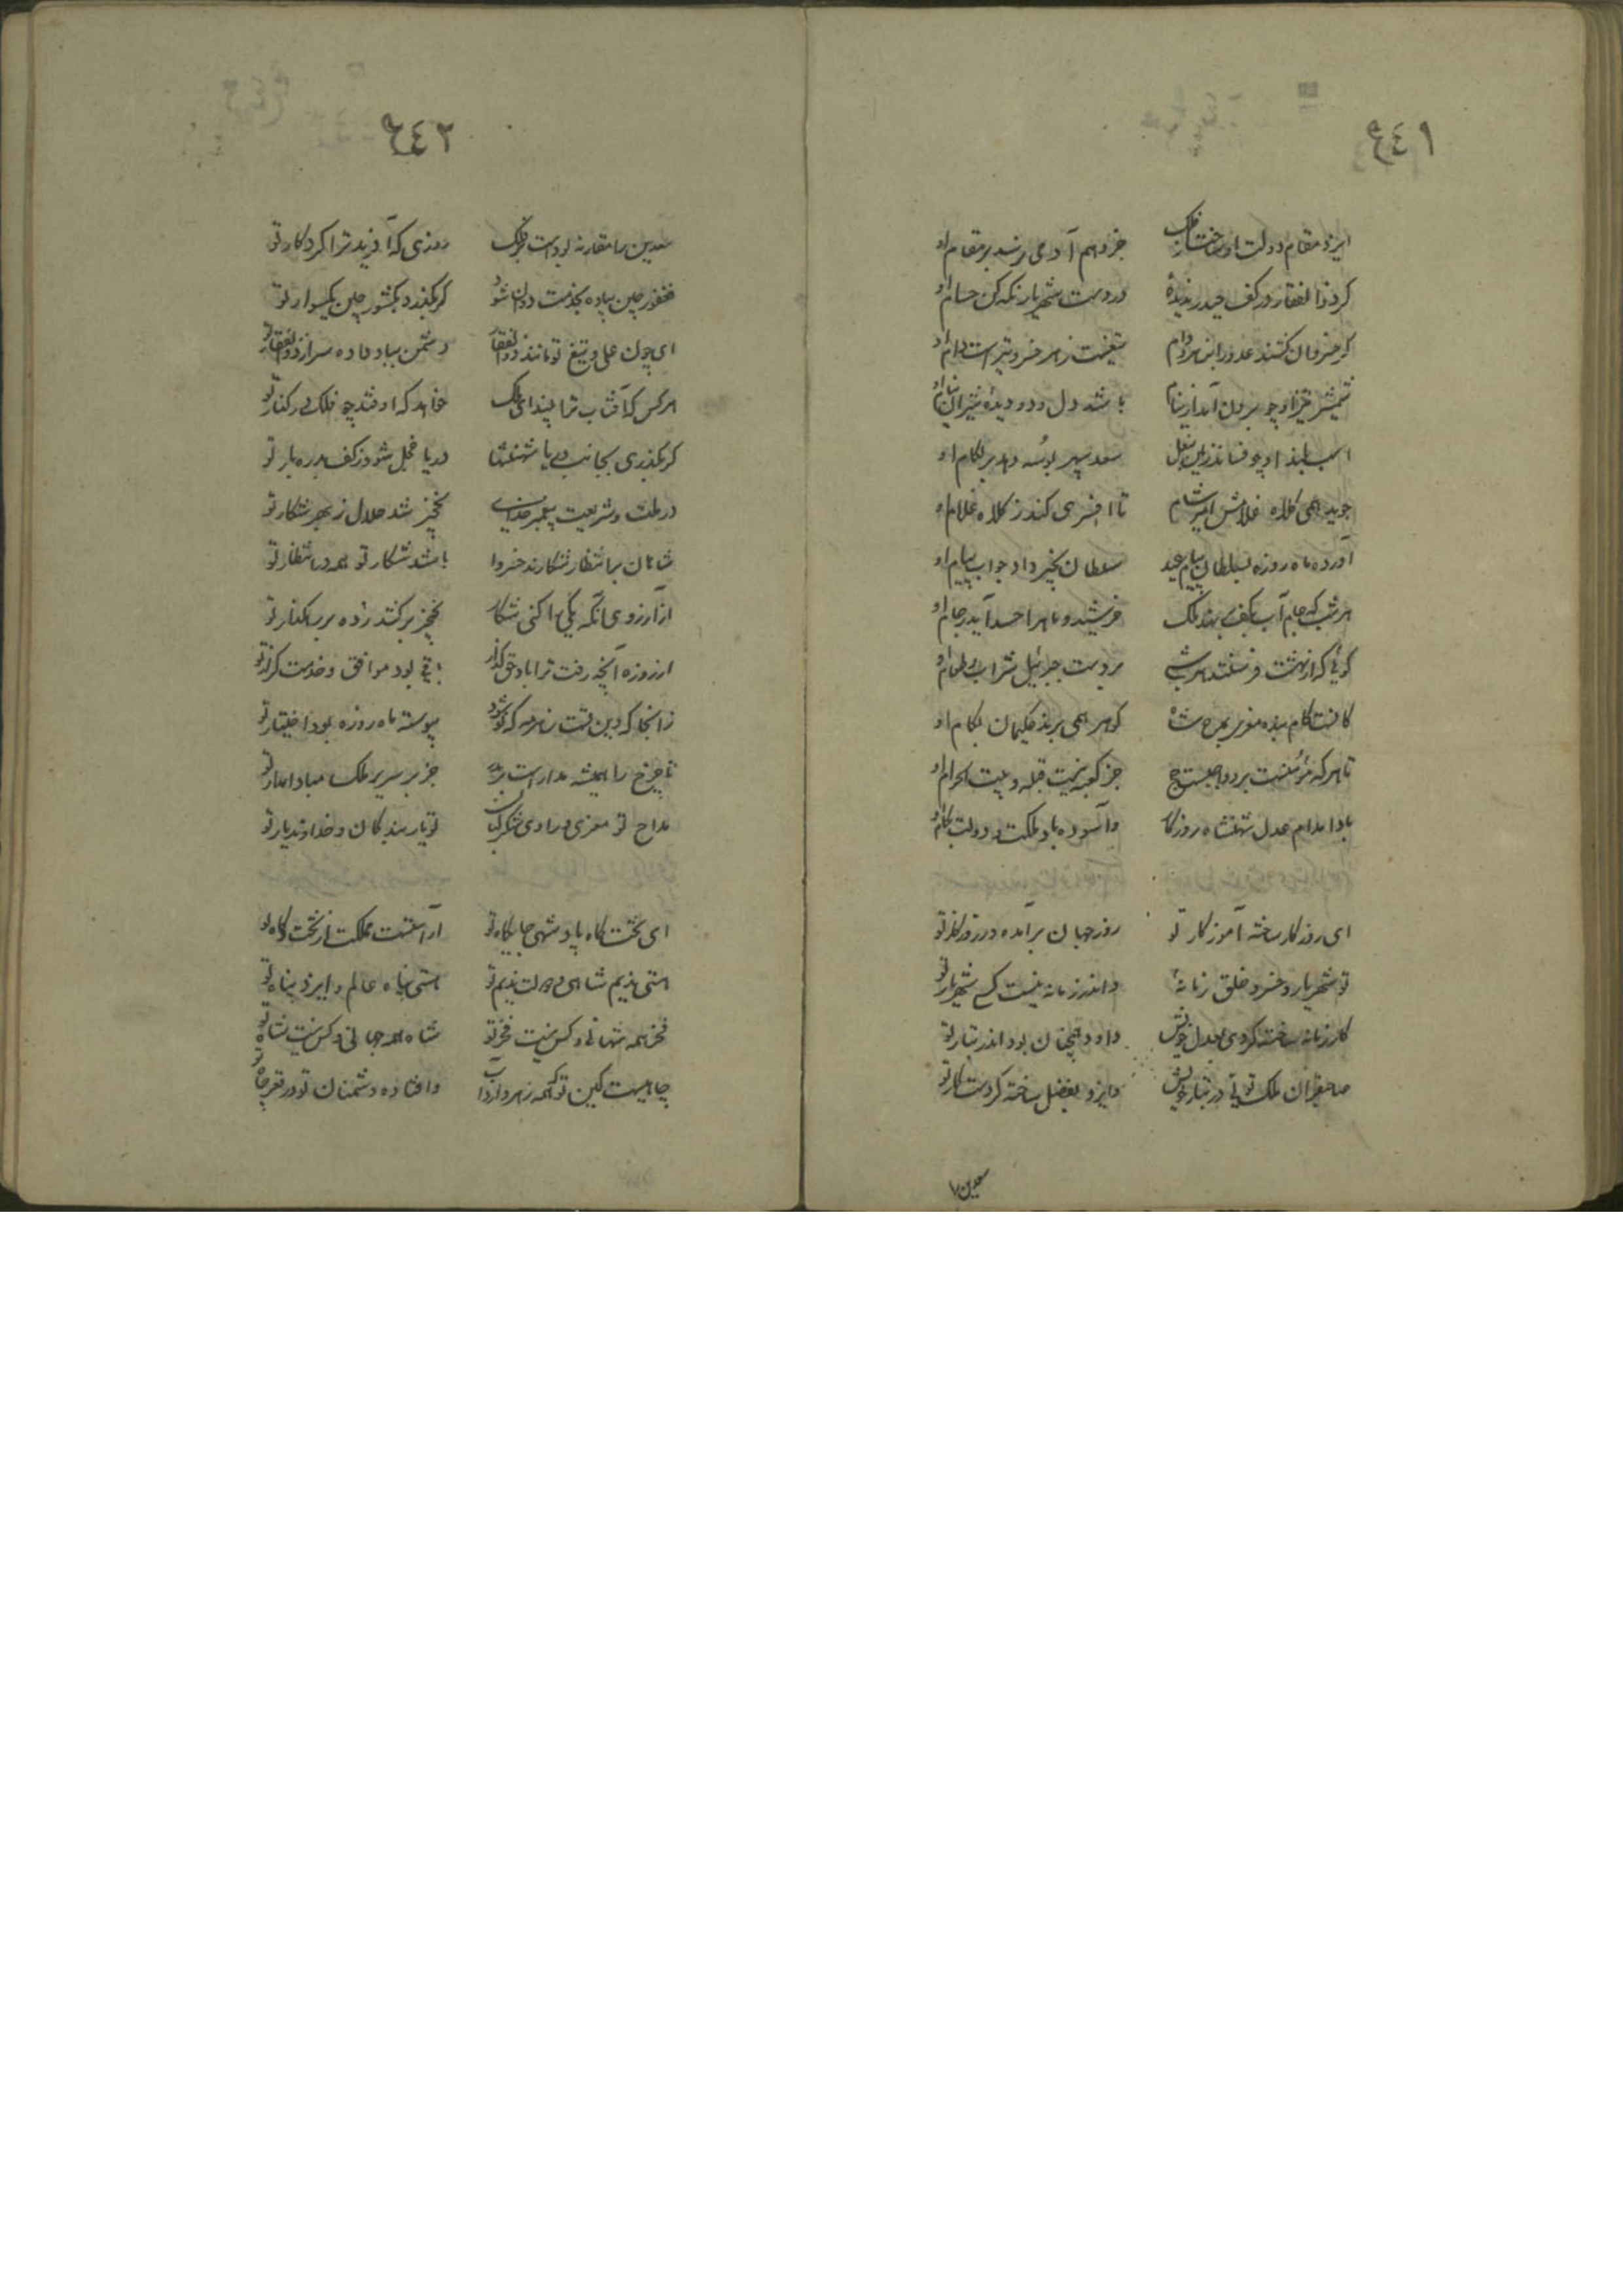 ٦٤١
ایزد مقام دولت او ساخت از فلک جز وهم آدمی نرسد بر مقام او
گر ذوالفقار در کف حیدر ندیدهٔ در دست شهریار نگه کن حسام او
گر خسروان کشند عدو را بزهر و دام تیغست زهر خسرو و تیر است دام او
شمشیر تیز او چو برون آید از نیام باشد دل و دو دیدهٔ شیران نیام او
اسب بلند او چو فشاند زپای نعل سعد سپهر بوسه دهد بر لگام او
جوید همی کلاه غلامش امیر شام تا افسری کند ز کلاه غلام او
آورده ماه روزه بسلطان پیام عید سلطان بخیر داد جواب پیام او
هر شب که جام آب بکف بر نهد ملک خورشید و ماه را حسد آید ز جام او
گوئی که از بهشت فرستند هر شبی بر دست جبرئیل شراب و طعام او
کافست کام بنده معزی بمدح شاه گوهر همی برند حکیمان بکام او
تا هر که مؤمنست برو واجبست حج جز کعبه نیست قبله و بیت الحرام او
بادا مدام عدل شهنشاه روزگار و آسوده باد ملکت و دولت بکام او
ای روزگار ساخته آموزگار تو روز جهان برآمده در روزگار تو
تو شهریار و خسرو خلق زمانهٔ و اندر زمانه نیست کسی شهریار تو
کار زمانه ساخته کردی بعدل خویش و ایزد بفضل ساخته کردست کار تو
صاحبقران ملک توئی در تبار خویش داود همچنان بود اندر تبار تو
سعدین را
٦٤٢
سعدین را مقارنه بودست بر فلک روزی که آفرید ترا کردگار تو
فغفور چین پیاده بخدمت دوان شود گر بگذرد بکشور چین یکسوار تو
ای چون علی و تیغ تو مانند ذوالفقار دشمن بباد داده سر از ذوالفقار تو
هر کس که آفتاب ترا بیند ای ملک خواهد که اوفتد چو فلک در کنار تو
گر بگذری بجانب دریا شهنشها دریا خجل شود ز کف بدره بار تو
در ملت و شریعت پیغمبر خدای نخجیر شد حلال ز بهر شکار تو
شاهان بانتظار شکارند خسروا باشد شکار تو همه در انتظار تو
از آرزوی آنکه یکی را کنی شکار نخجیر بر کشد زده بر رهگذار تو
از روزه آنچه رفت ترا باد حق گذار باقی بود موافق و خدمت گزار تو
زانجا که دین تست ز هر مه که نو شود پیوسته ماه روزه بود اختیار تو
تا چرخ را همیشه مدار است بر مدار جز بر سریر ملک مبادا مدار تو
مداح تو معزی و راوی شکر لبان تو یار بندگان و خداوند یار تو
ای تخت گاه پادشهی جایگاه تو آراستست مملکت از تخت گاه تو
هستی ندیم شاهی و دولت ندیم تو هستی پناه عالم و ایزد پناه تو
فخر همه شهانی و کس نیست فخر تو شاه همه جهانی و کس نیست شاه تو
چاهیست کین تو که همه زهر دارد آب و افتاده دشمنان تو در قعر چاه تو